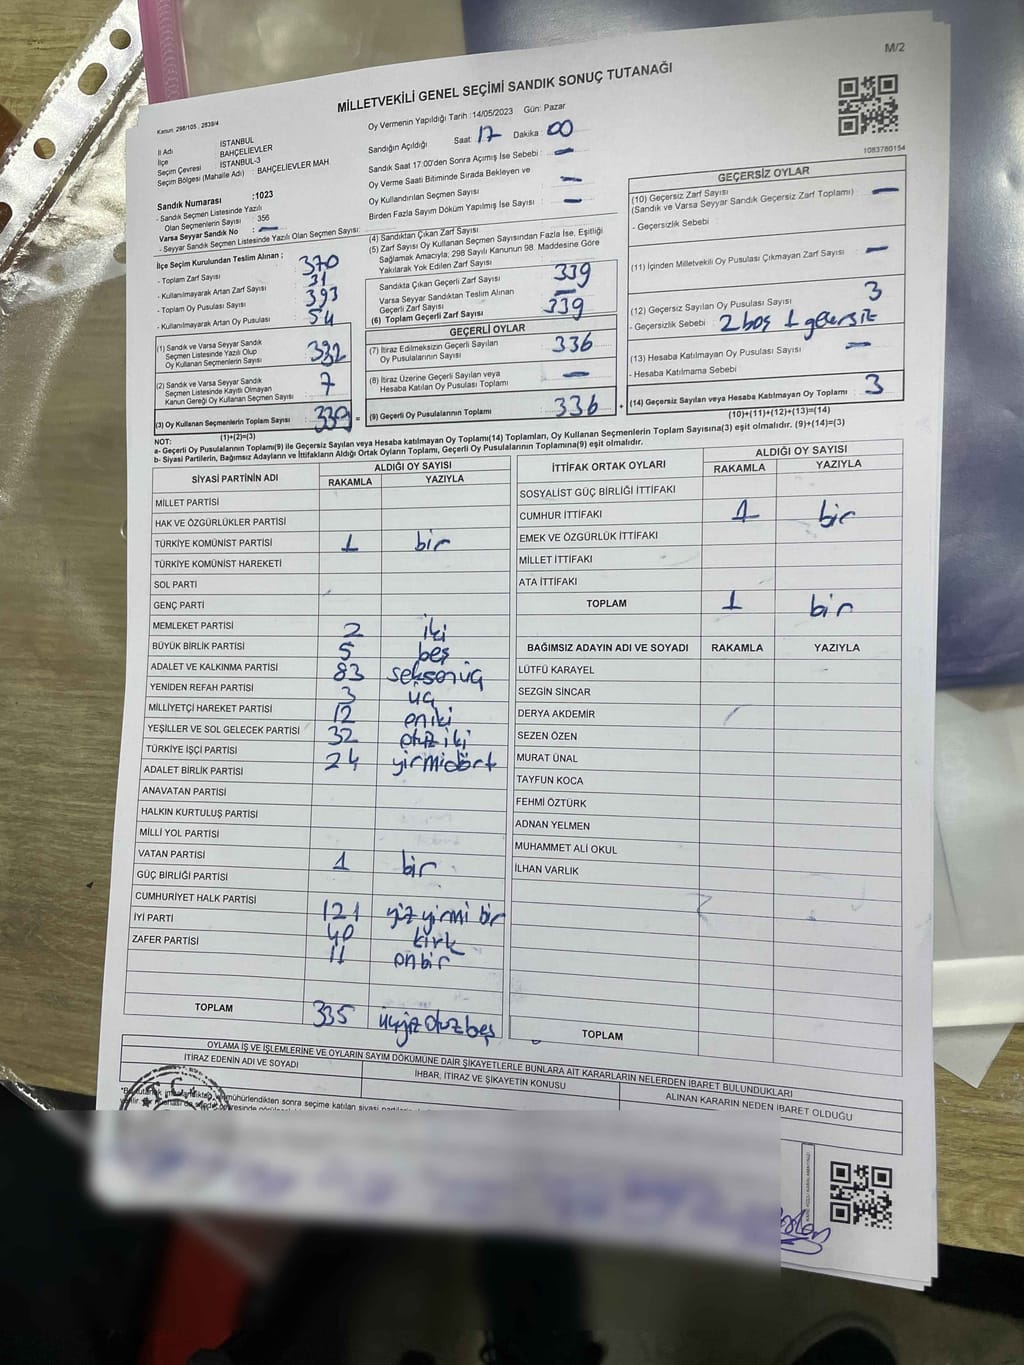 M/2
MİLLETVEKİLİ GENEL SEÇİMİ SANDIK SONUÇ TUTANAĞI
Kanun: 298/105, 2839/4
İl Adı : İSTANBUL
İlçe : BAHÇELİEVLER
Seçim Çevresi : İSTANBUL-3
Seçim Bölgesi (Mahalle Adı) : BAHÇELİEVLER MAH
Sandık Numarası :1023
- Sandık Seçmen Listesinde Yazılı
Olan Seçmenlerin Sayısı : 356
Varsa Seyyar Sandık No : —
- Seyyar Sandık Seçmen Listesinde Yazılı Olan Seçmen Sayısı:
Oy Vermenin Yapıldığı Tarih : 14/05/2023 Gün: Pazar
Sandığın Açıldığı Saat : 17 Dakika : 00
Sandık Saat 17:00'den Sonra Açılmış İse Sebebi : —
Oy Verme Saati Bitiminde Sırada Bekleyen ve
Oy Kullandırılan Seçmen Sayısı : —
Birden Fazla Sayım Döküm Yapılmış İse Sayısı : —
1083780154
İlçe Seçim Kurulundan Teslim Alınan ;
- Toplam Zarf Sayısı : 370
- Kullanılmayarak Artan Zarf Sayısı : 31
- Toplam Oy Pusulası Sayısı : 393
- Kullanılmayarak Artan Oy Pusulası : 54
(1) Sandık ve Varsa Seyyar Sandık
Seçmen Listesinde Yazılı Olup
Oy Kullanan Seçmenlerin Sayısı : 332
(2) Sandık ve Varsa Seyyar Sandık
Seçmen Listesinde Kayıtlı Olmayan
Kanun Gereği Oy Kullanan Seçmen Sayısı : 7
(3) Oy Kullanan Seçmenlerin Toplam Sayısı : 339 =
(1)+(2)=(3)
(4) Sandıktan Çıkan Zarf Sayısı
(5) Zarf Sayısı Oy Kullanan Seçmen Sayısından Fazla İse, Eşitliği
Sağlamak Amacıyla; 298 Sayılı Kanunun 98. Maddesine Göre
Yakılarak Yok Edilen Zarf Sayısı
Sandıkta Çıkan Geçerli Zarf Sayısı : 339
Varsa Seyyar Sandıktan Teslim Alınan
Geçerli Zarf Sayısı : —
(6) Toplam Geçerli Zarf Sayısı : 339
GEÇERLİ OYLAR
(7) İtiraz Edilmeksizin Geçerli Sayılan
Oy Pusulalarının Sayısı : 336
(8) İtiraz Üzerine Geçerli Sayılan veya
Hesaba Katılan Oy Pusulası Toplamı : —
(9) Geçerli Oy Pusulalarının Toplamı : 336 +
GEÇERSİZ OYLAR
(10) Geçersiz Zarf Sayısı : —
(Sandık ve Varsa Seyyar Sandık Geçersiz Zarf Toplamı)
- Geçersizlik Sebebi :
(11) İçinden Milletvekili Oy Pusulası Çıkmayan Zarf Sayısı : —
(12) Geçersiz Sayılan Oy Pusulası Sayısı : 3
- Geçersizlik Sebebi : 2 boş 1 geçersiz
(13) Hesaba Katılmayan Oy Pusulası Sayısı : —
- Hesaba Katılmama Sebebi
(14) Geçersiz Sayılan veya Hesaba Katılmayan Oy Toplamı : 3
(10)+(11)+(12)+(13)=(14)
NOT:
a- Geçerli Oy Pusulaları Toplamı(9) ile Geçersiz Sayılan veya Hesaba katılmayan Oy Toplamı(14) Toplamları, Oy Kullanan Seçmenlerin Toplam Sayısına(3) eşit olmalıdır. (9)+(14)=(3)
b- Siyasi Partilerin, Bağımsız Adayların ve İttifakların Aldığı Ortak Oyların Toplamı, Geçerli Oy Pusulalarının Toplamına(9) eşit olmalıdır.
SİYASİ PARTİNİN ADI ALDIĞI OY SAYISI
RAKAMLA YAZIYLA
MİLLET PARTİSİ
HAK VE ÖZGÜRLÜKLER PARTİSİ
TÜRKİYE KOMÜNİST PARTİSİ 1 bir
TÜRKİYE KOMÜNİST HAREKETİ
SOL PARTİ
GENÇ PARTİ
MEMLEKET PARTİSİ 2 iki
BÜYÜK BİRLİK PARTİSİ 5 beş
ADALET VE KALKINMA PARTİSİ 83 seksenüç
YENİDEN REFAH PARTİSİ 3 üç
MİLLİYETÇİ HAREKET PARTİSİ 12 oniki
YEŞİLLER VE SOL GELECEK PARTİSİ 32 otuz iki
TÜRKİYE İŞÇİ PARTİSİ 24 yirmidört
ADALET BİRLİK PARTİSİ
ANAVATAN PARTİSİ
HALKIN KURTULUŞ PARTİSİ
MİLLİ YOL PARTİSİ
VATAN PARTİSİ 1 bir
GÜÇ BİRLİĞİ PARTİSİ
CUMHURİYET HALK PARTİSİ 121 yüz yirmi bir
İYİ PARTİ 40 kırk
ZAFER PARTİSİ 11 onbir
TOPLAM 335 üçyüz otuz beş
İTTİFAK ORTAK OYLARI ALDIĞI OY SAYISI
RAKAMLA YAZIYLA
SOSYALİST GÜÇ BİRLİĞİ İTTİFAKI
CUMHUR İTTİFAKI 1 bir
EMEK VE ÖZGÜRLÜK İTTİFAKI
MİLLET İTTİFAKI
ATA İTTİFAKI
TOPLAM 1 bir
BAĞIMSIZ ADAYIN ADI VE SOYADI RAKAMLA YAZIYLA
LÜTFÜ KARAYEL
SEZGİN SİNCAR
DERYA AKDEMİR
SEZEN ÖZEN
MURAT ÜNAL
TAYFUN KOCA
FEHMİ ÖZTÜRK
ADNAN YELMEN
MUHAMMET ALİ OKUL
İLHAN VARLIK
TOPLAM
OYLAMA İŞ VE İŞLEMLERİNE VE OYLARIN SAYIM DÖKÜMÜNE DAİR ŞİKAYETLERLE BUNLARA AİT KARARLARIN NELERDEN İBARET BULUNDUKLARI
İTİRAZ EDENİN ADI VE SOYADI
İHBAR, İTİRAZ VE ŞİKAYETİN KONUSU
ALINAN KARARIN NEDEN İBARET OLDUĞU
T.C.